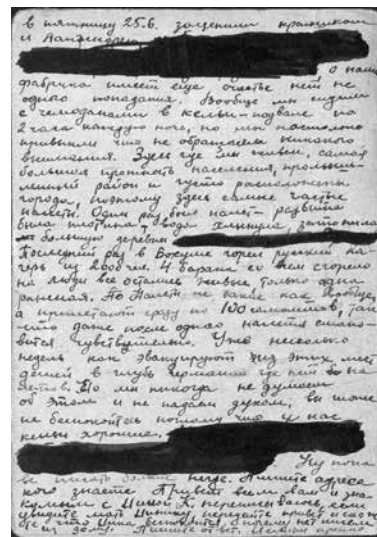 в пятницу 25.6. зацепили краешком
и
о нашу
фабрика имеет еще счастье нет не
одного попадания. Вообще мы сидим
с чемоданами в кельи-подвале по
2 часа каждую ночь, но мы настолько
привыкли что не обращаем никакого
внимания. Здесь где мы живем, самая
большая плотность населения, промыш-
линый район и густо расположены
города, поэтому здесь самые частые
налеты. Один раз был налет-разбили
была плотина, вода хлынула, затопила
большую деревню
Последний раз в Бохуме горел русский ла-
герь из 2000 чел. 4 барака со всем сгорело
на люди все остались живые только одна
раненая. Но налеты не такие как вообще,
а прилетают сразу по 100 самолетов, так
что даже после одного налета стано-
вится чувствительно. Уже несколько
недель как эвакуируют из этих мест
детей в глубь германии где нет
налетов. Но мы никогда не думаем
об этом и не падаем духом, вы тоже
не беспокойтесь потому что у нас
кельи хорошие.
Ну пока
писать больше негде. Пишите адреса
кого знаете Привет всем вам и зна-
комым с Циной К. переписываюсь, если
увидите мать Цинину, передайте привет и ска
что Цина беспокоится,
из дому. Пишите ответ. Целую крепко